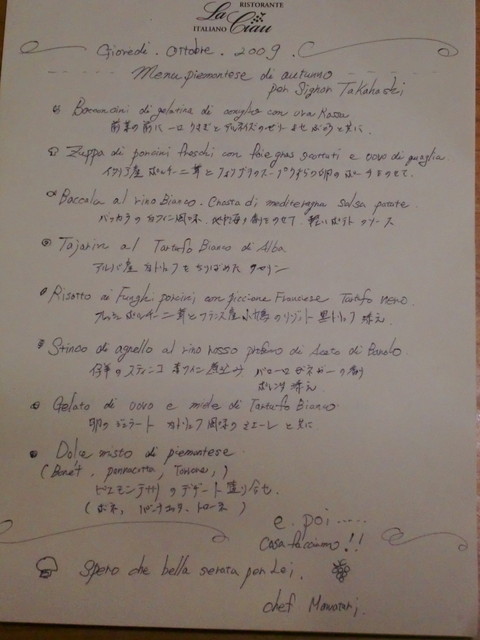 RISTORANTE
La Ciau
ITALIANO
Giovedì. Ottobre. 2009.
Menu piemontese di autunno
per Signor Takahashi
Bocconcini di gelatina di coniglio con uva
前菜の前に一口
Zuppa di porcini freschi con foie gras scottati e uovo di quaglia
イタリア産ポルチーニ茸とフォアグラ
Baccala al vino Bianco. Crosta di mediterranea salsa patate.
バッカラの白ワイン風味
Tajarin al Tartufo Bianco di Alba
アルバ産白トリュフをちりばめたタヤリン
Risotto ai Funghi porcini con piccione Francese Tartufo nero.
ポルチーニ茸とフランス産小鳩のリゾット 黒トリュフ添え
Stinco di agnello al vino rosso profumo di Aceto di Barolo
仔羊のスティンコ 赤ワイン煮込み バローロビネガーの香り
ポレンタ添え
Gelato di uovo e miele di Tartufo Bianco
卵のジェラート 白トリュフ風味のミエーレと共に
Dolce misto di piemontese
(Bonét, pannacotta, Torrone,)
ピエモンテのデザート盛り合せ
(ボネ, パンナコッタ, トローネ)
e. poi.....
Cosa facciamo!!
Spero che bella serata per Lei.
chef